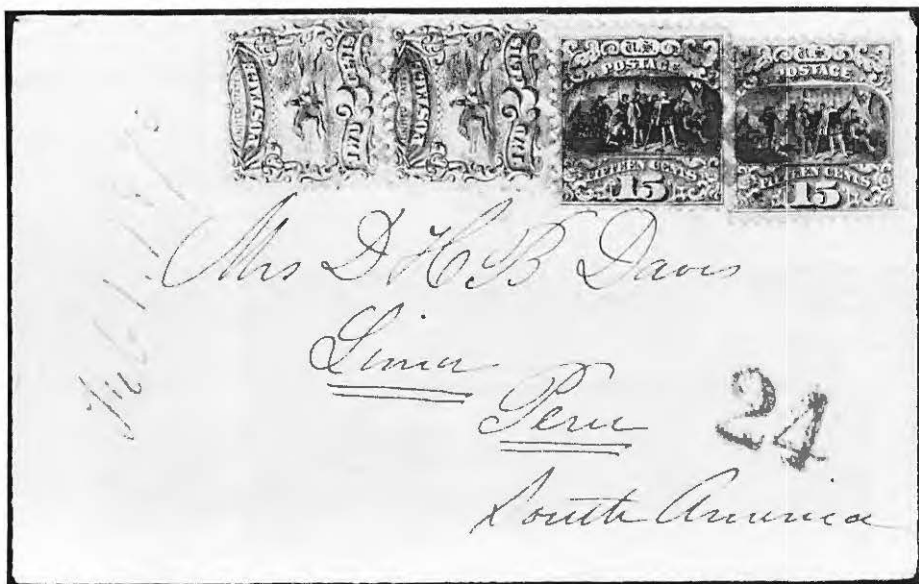 UNITED STATES
POSTAGE
TWO CENTS
POSTAGE
TWO CENTS
U.S.
POSTAGE
FIFTEEN CENTS
15
U.S.
POSTAGE
FIFTEEN CENTS
15
Mrs D H B Davis
Lima
Peru
24
South America